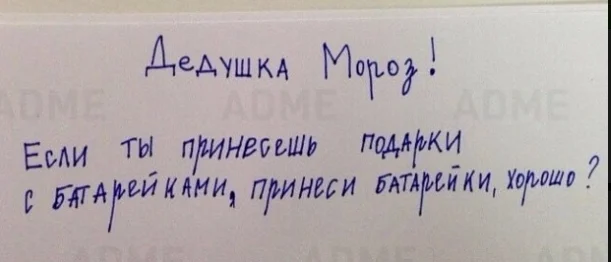 Дедушка Мороз!
ADME ADME ADME
Если ты принесешь подарки
с батарейками, принеси батарейки, хорошо?
ADME ADME ADME